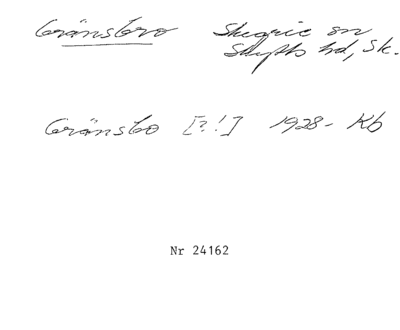 Gränsbro Skegrie sn
Skytts hd, Sk.
Gränsbo [?!] 1928- Kb
Nr 24162